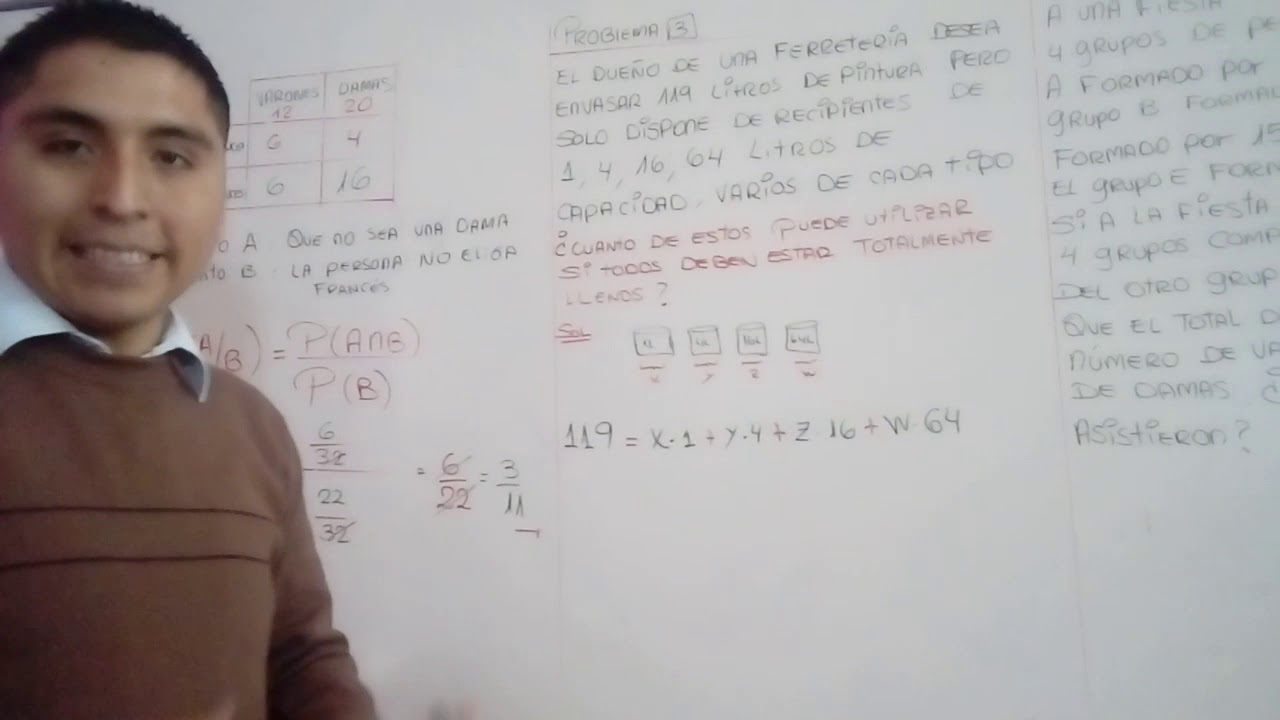 VARONES DAMAS
12 20
6 4
6 16
A : QUE NO SEA UNA DAMA
B : LA PERSONA NO ELIJA
FRANCÉS
A/B) = P(A∩B)
P(B)
6
32
22
32
= 6 = 3
22 11
PROBLEMA 3
EL DUEÑO DE UNA FERRETERÍA DESEA
ENVASAR 119 LITROS DE PINTURA PERO
SOLO DISPONE DE RECIPIENTES DE
1, 4, 16, 64 LITROS DE
CAPACIDAD, VARIOS DE CADA TIPO
¿CUANTO DE ESTOS PUEDE UTILIZAR
SI TODOS DEBEN ESTAR TOTALMENTE
LLENOS?
SOL
X Y Z W
119 = X·1 + Y·4 + Z·16 + W·64
A UNA FIESTA
4 GRUPOS DE
A FORMADO POR
GRUPO B
FORMADO POR 15
EL GRUPO E
SI A LA FIESTA
4 GRUPOS
DEL OTRO
QUE EL TOTAL
NÚMERO DE
DE DAMAS
ASISTIERON?